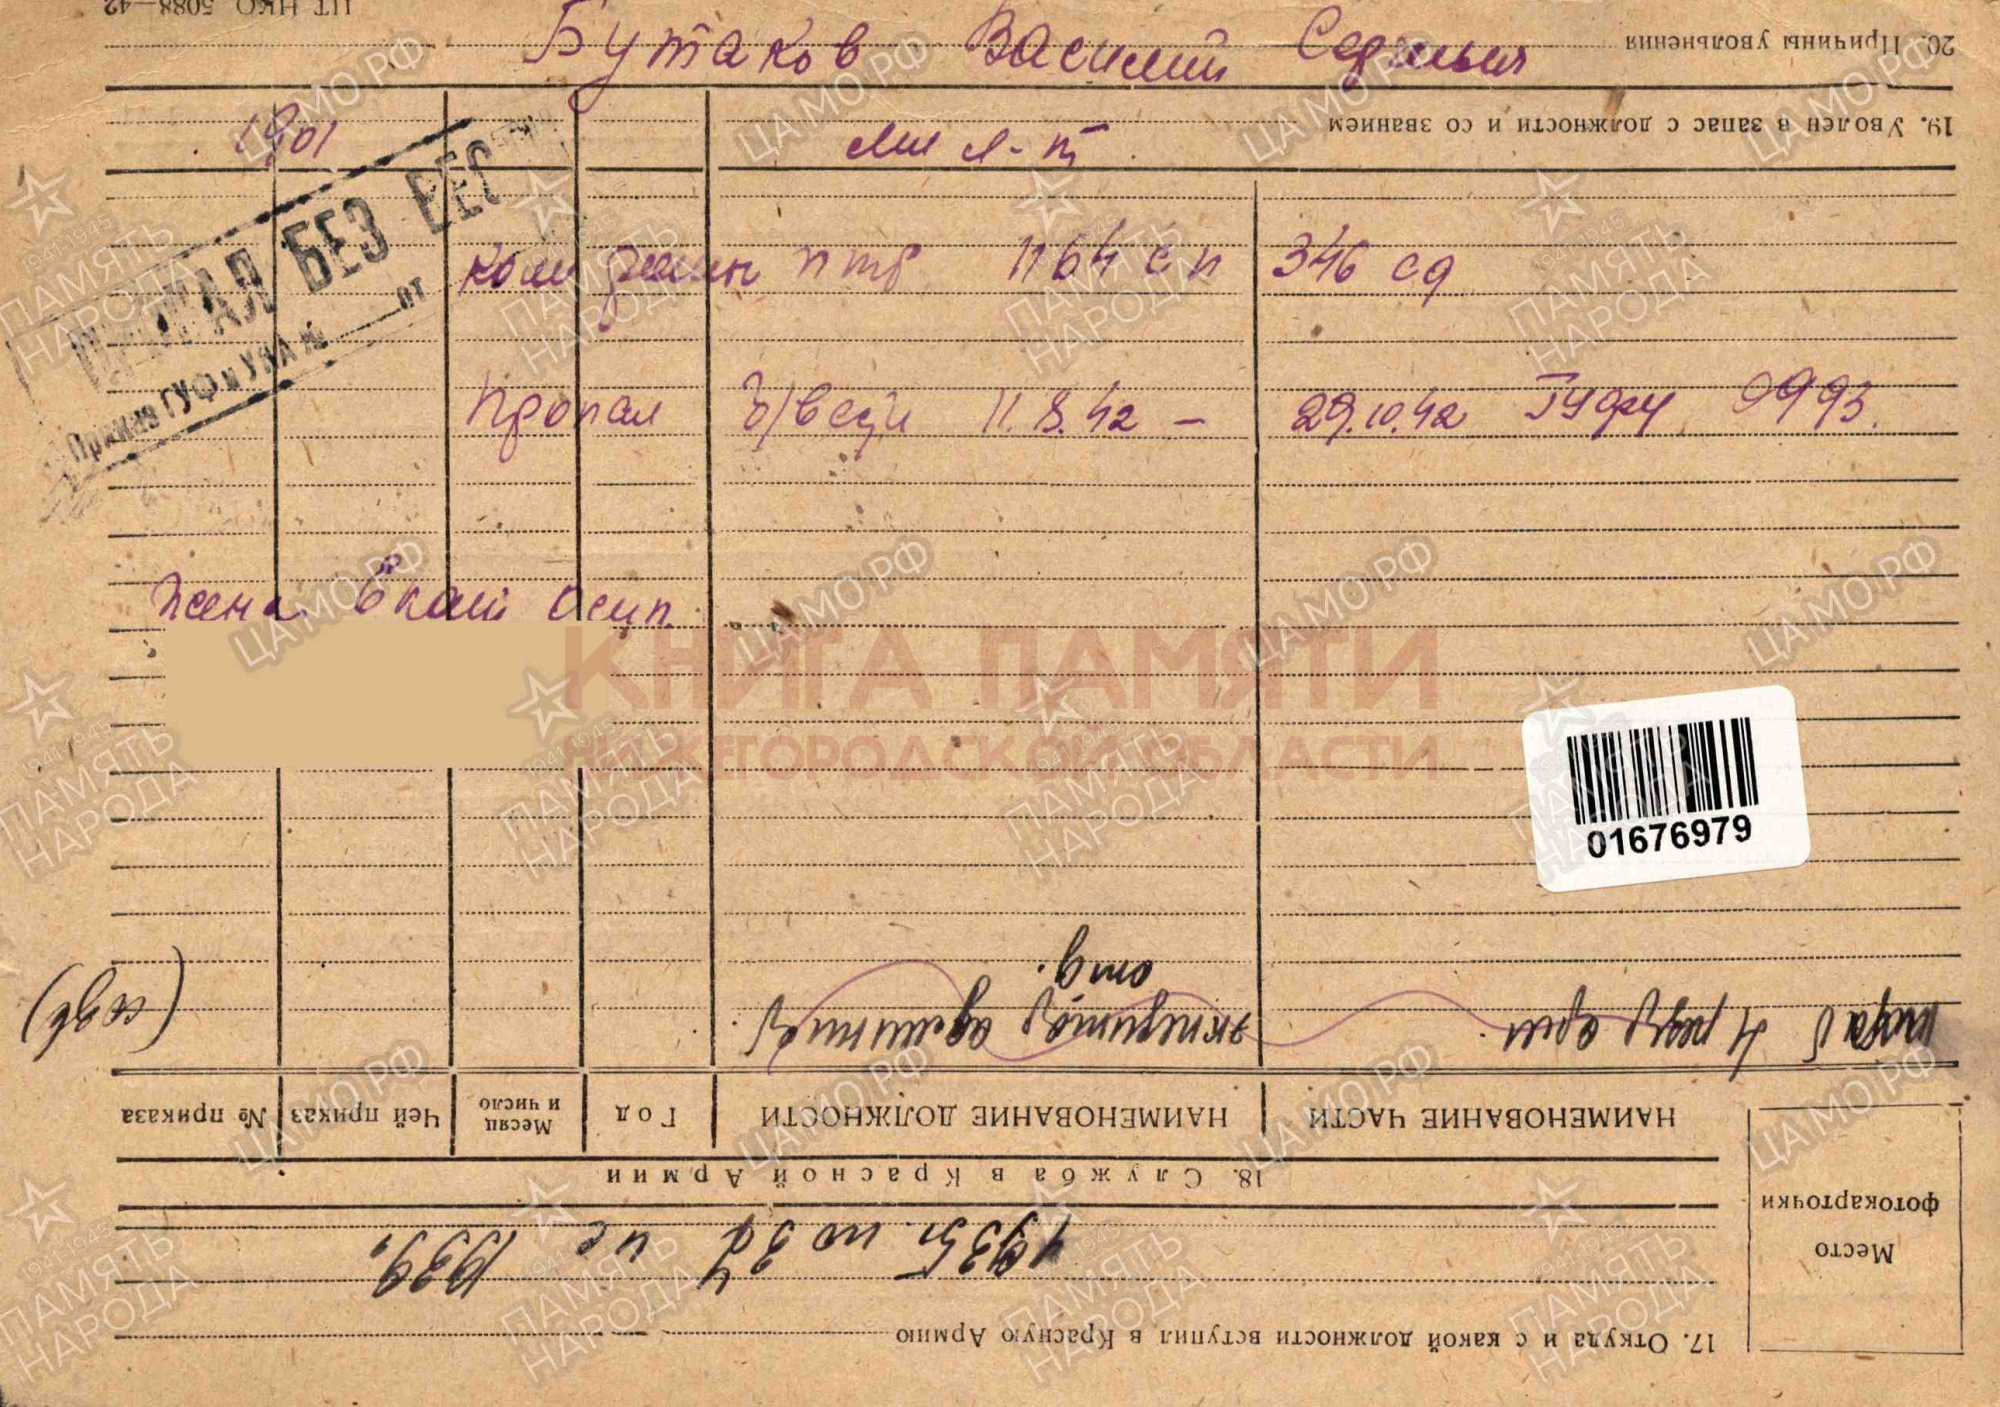 Бутаков Василий
1901
Мл л-т
ПРОПАЛ БЕЗ ВЕС
Приказ ГУФ и УКА № от
ком роты птр 1164 сп 346 сд
Пропал б/вести 11.8.42 – 29.10.42 ГУФУ 0993.
Жена Осип.
КНИГА ПАМЯТИ
НИЖЕГОРОДСКОЙ ОБЛАСТИ
01676979
ЦТ НКО 5088—42
17. Откуда и с какой должности вступил в Красную Армию
1935г. по 37 и с 1939г.
Место
фотокарточки
18. Служба в Красной Армии
НАИМЕНОВАНИЕ ЧАСТИ
НАИМЕНОВАНИЕ ДОЛЖНОСТИ
Год
Месяц и число
Чей приказ
№ приказа
отд.
19. Уволен в запас с должности и со званием
20. Причины увольнения
ЦАМО.РФ
ПАМЯТЬ НАРОДА
1941-1945